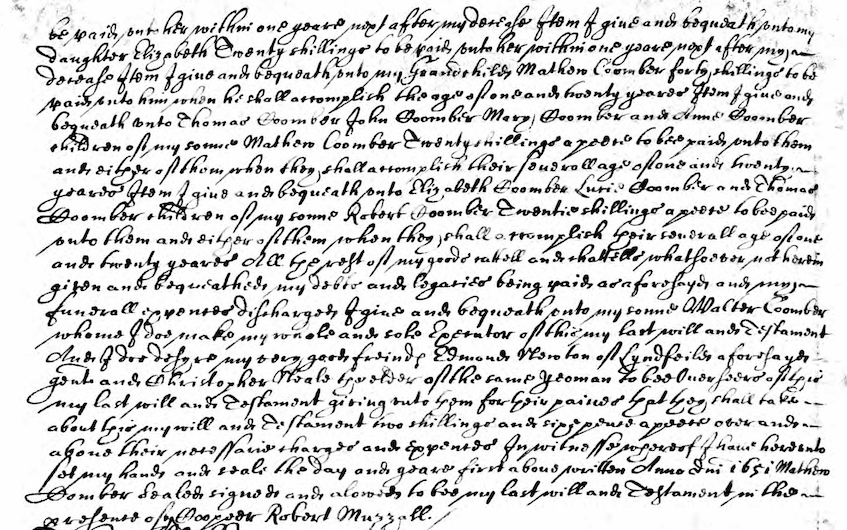 be paid unto her within one yeare next after my decease Item I give and bequeath unto my
daughter Elizabeth Twenty shillings to be paid unto her within one yeare next after my
decease Item I give and bequeath unto my Grandchild Mathew Coomber forty shillings to be
paid unto him when he shall accomplish the age of one and twenty yeares Item I give and
bequeath unto Thomas Coomber John Coomber Mary Coomber and Anne Coomber
children of my sonne Mathew Coomber Twenty shillings a peece to bee paid unto them
and either of them when they shall accomplish their severall age of one and twenty
yeares Item I give and bequeath unto Elizabeth Coomber Lucie Coomber and Thomas
Coomber children of my sonne Robert Coomber Twentie shillings a peece to bee paid
unto them and either of them when they shall accomplish their severall age of one
and twenty yeares All the rest of my goods cattell and chattells whatsoever not herein
given and bequeathed my debts and legacies being paid as aforesayd and my
funerall expences discharged I give and bequeath unto my sonne Walter Coomber
whome I doe make my whole and sole Executor of this my last will and Testament
And I doe desyre my very good freind Edmund Newton of Lyndfeild aforesayd
gent and Christopher Neale the elder of the same yeoman to bee Overseers of this
my last will and Testament giving unto them for their paines that they shall take
about this my will and Testament two shillings and sixpence a peece over and
above their necessarie charges and expences In witnesse whereof I have hereunto
set my hand and seale the day and yeare first above written Anno dni 1651 Mathew
Comber Sealed signed and alowed to bee my last will and Testament in the
presence of Robert Muzzall.